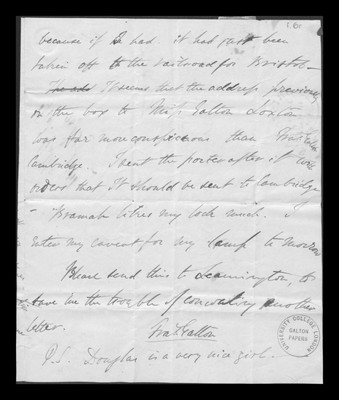 because if it had. it had just been
taken off to the railroad for Bristol –
It seems that the address previously
on the box to Miss Galton Loxton
was far more conspicuous than Fras Galton
Cambridge. I sent the porter after it &
ordered that it should be sent to Cambridge
– Bramah likes my lock much. I
enter my caveat for my lamp tomorrow
Please send this to Leamington, to
save me the trouble of concocting another
letter.
Fras Galton
P.S. Douglas is a very nice girl.
UNIVERSITY COLLEGE LONDON
GALTON
PAPERS